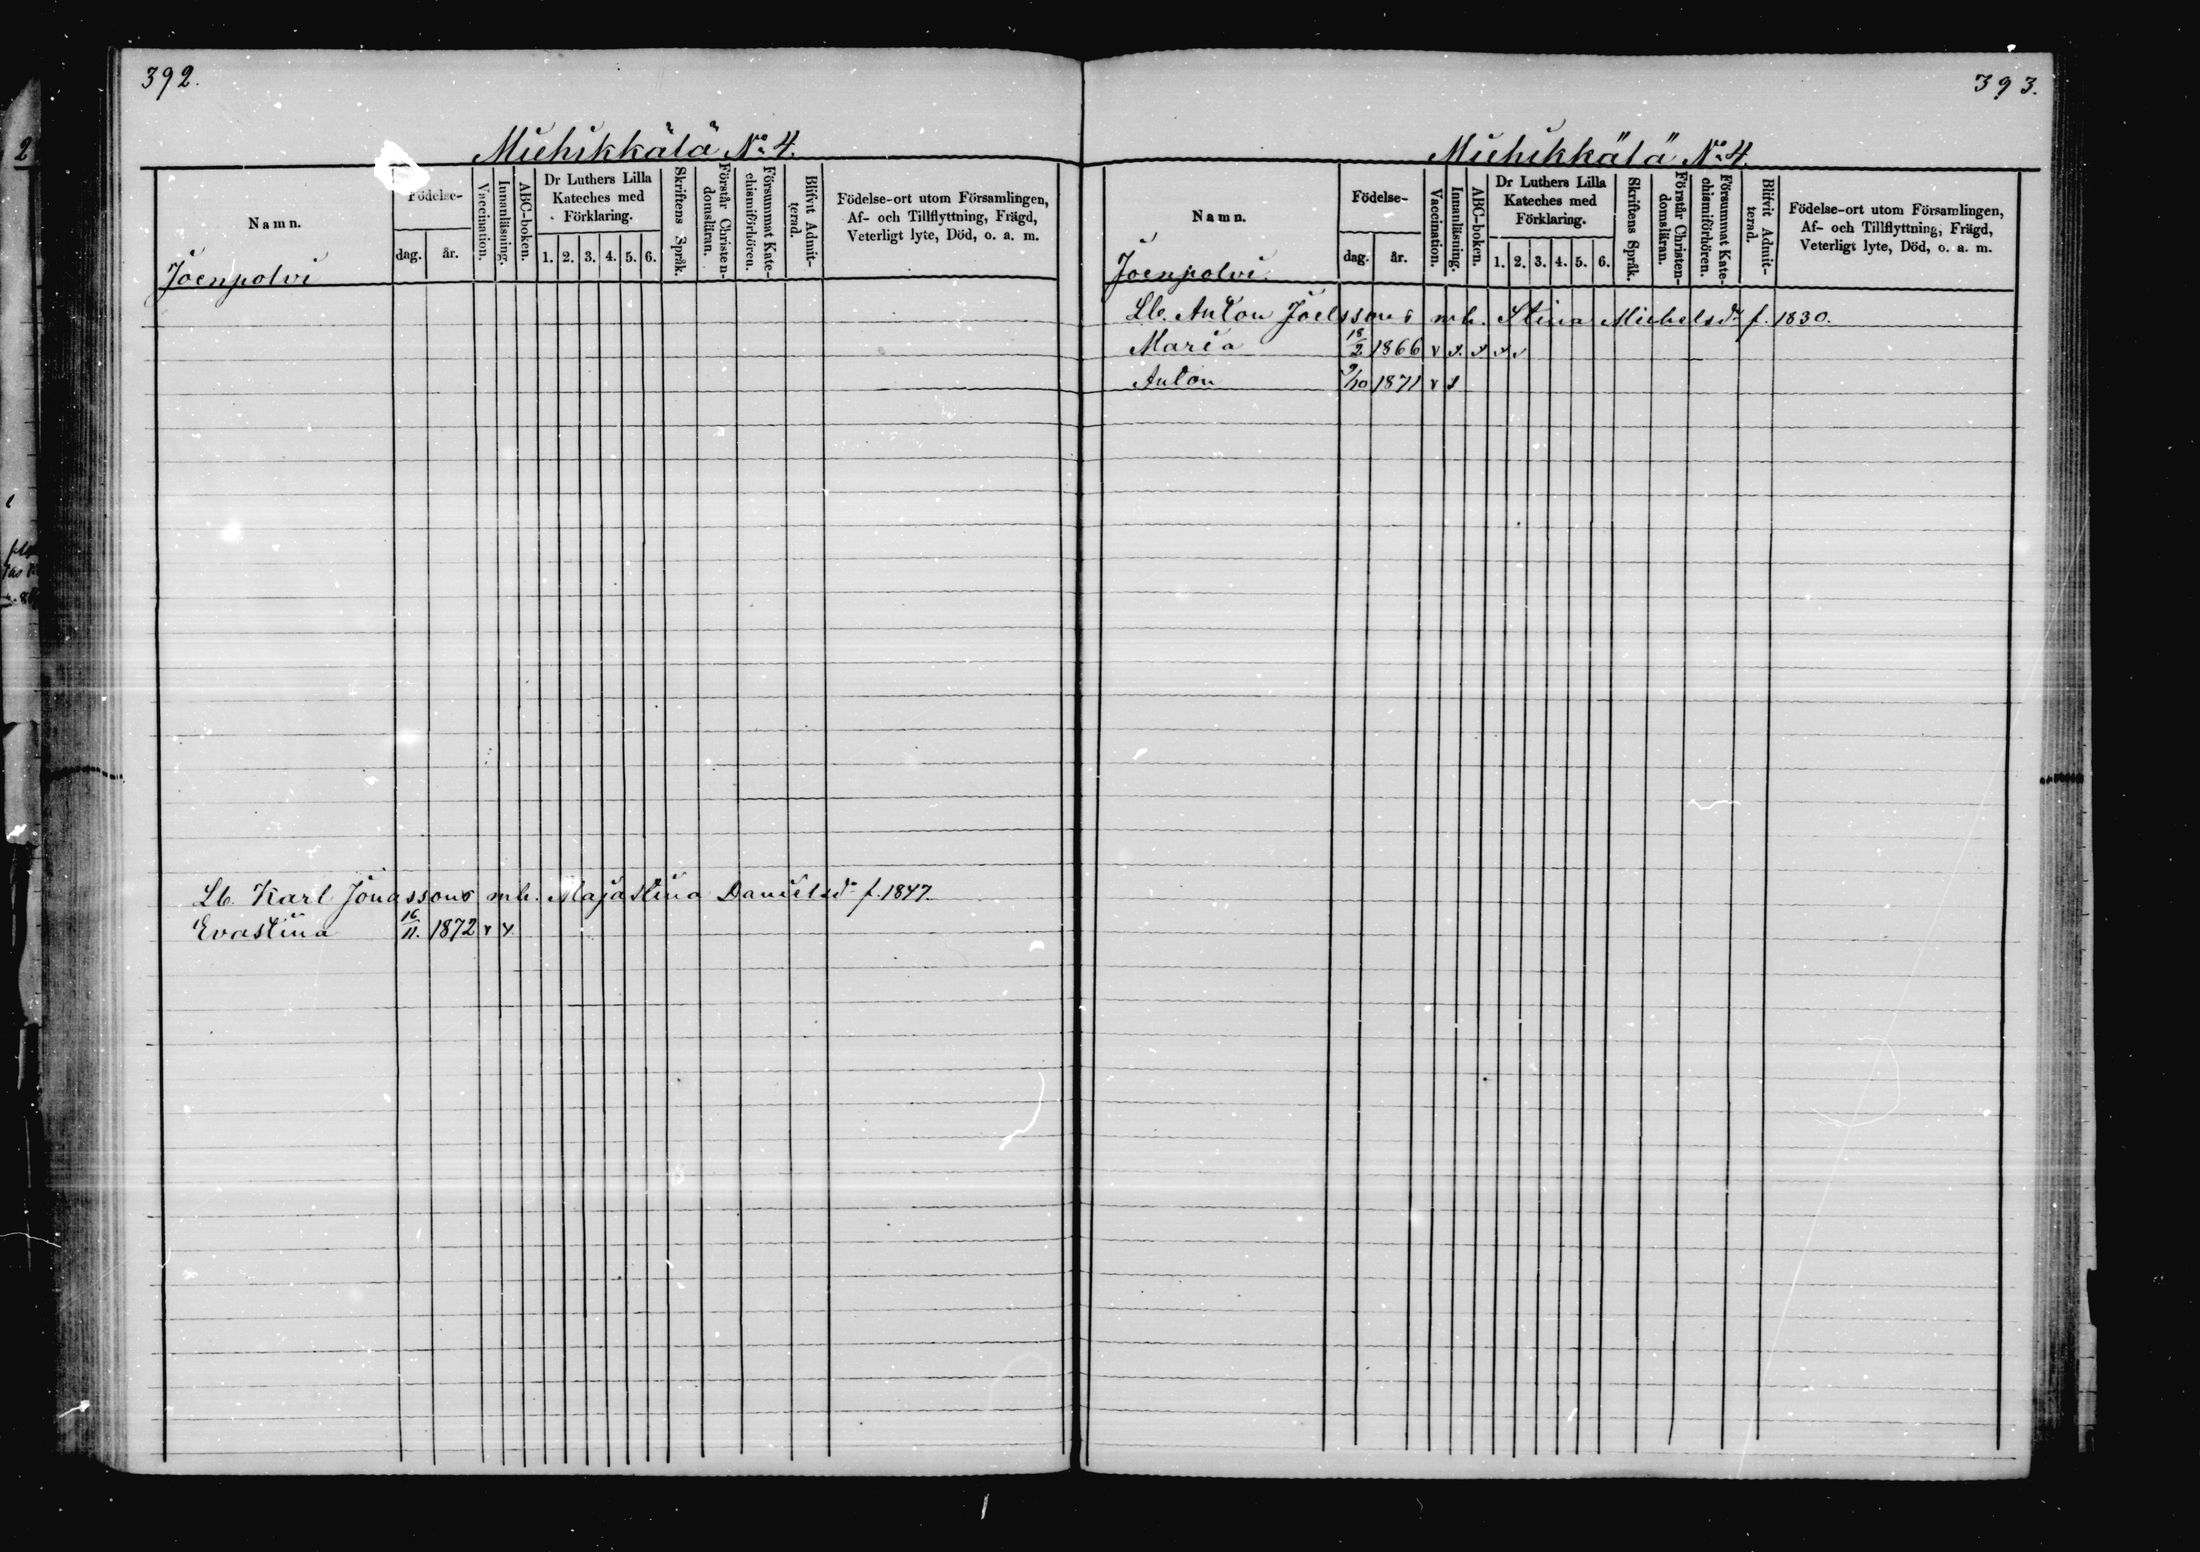 392.
Miehikkälä No 4.
Namn.
Födelse-
dag. år.
Vaccination.
Innanläsning.
ABC-boken.
Dr Luthers Lilla Kateches med Förklaring.
1. 2. 3. 4. 5. 6.
Skriftens Språk.
Förstår Christendomsläran.
Försummat Katechismiförhören.
Blifvit Admitterad.
Födelse-ort utom Församlingen,
Af- och Tillflyttning, Frägd,
Veterligt lyte, Död, o. a. m.
Joenpolvi
Lb. Karl Jonassons mh. Majastina Danielsdr f. 1847.
Evastina 16/11. 1872 v v
393.
Miehikkälä No 4.
Namn.
Födelse-
dag. år.
Vaccination.
Innanläsning.
ABC-boken.
Dr Luthers Lilla Kateches med Förklaring.
1. 2. 3. 4. 5. 6.
Skriftens Språk.
Förstår Christendomsläran.
Försummat Katechismiförhören.
Blifvit Admitterad.
Födelse-ort utom Församlingen,
Af- och Tillflyttning, Frägd,
Veterligt lyte, Död, o. a. m.
Joenpolvi.
Lb. Anton Joelssons mh. Stina Michelsdr f. 1830.
Maria 18/2 1866 v v v v v
Anton 9/10 1871 v v